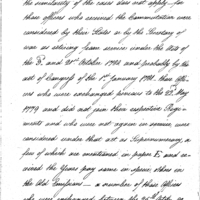 similarity of the cases does not apply — for
those officers who received the Commutation were
considered by their States or by the Secretary
of war as being in service under the Acts of
the 3d. and 21st October 1780 and probably by the
act of Congress of the 1st January 1781. then Offi-
cers who were exchanged previous to the 23d. May
1779 and did not join their respective Regi-
ments and who were not again in service were
considered under that act as Supernumerary, a
few of which are mentioned in paper E and re-
ceived the Years pay same in specie others in
the Old Emissions — a number of these Officers
who were exchanged between the